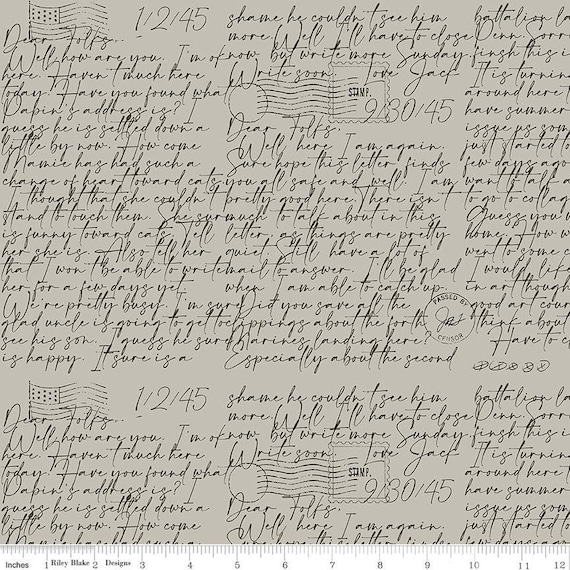 1/2/45
Dear Folks,
Well how are you. I'm of
here. Haven't much here
today. Have you found wha
Papin's address is?
guess he is settled down a
little by now. How come
Mamie has had such a
change of heart toward cats
I thought that she couldn't
stand to touch them. She sur
is funny toward cats. Tell
her she is. Also tell her
that I won't be able to write
her for a few days yet.
We're pretty busy. I'm sure
glad uncle is going to get to
see his son. I guess he sure
is happy. It sure is a
shame he couldn't see him
more. Well I'll have to close
now but write more Sunday.
Write soon. Love Jack
STAMP.
9/30/45
Dear Folks,
Well here I am again.
Sure hope this letter finds
you all safe and well. I am
pretty good here. There isn't
much to talk about in this
letter, as things are pretty
quiet. Still have a lot of
mail to answer. I'll be glad
when I am able to catch up.
Did you save all the
clippings about the forth
Marines landing here?
Especially about the second
battalion la
Penn. Sorr
finsh this i
It is turnin
around here t
have summer
issue us som
just started to
few days ago
want to talk a
to go to collag
Guess you w
home. How w
went to some c
I would life
in art though
good art cour
think about
Have to c
PASSED BY
CENSOR
1/2/45
Dear Folks,
Well how are you. I'm of
here. Haven't much here
today. Have you found wha
Papin's address is?
guess he is settled down a
little by now. How come
shame he couldn't see him
more. Well I'll have to close
now but write more Sunday.
Write soon. Love Jack
STAMP.
9/30/45
Dear Folks,
Well here I am again.
Sure hope this letter finds
battalion la
Penn. Sorr
finsh this i
It is turnin
around here t
have summer
issue us som
just started to
few days ago
Inches 1 Riley Blake 2 Designs 3 4 5 6 7 8 9 10 11 12